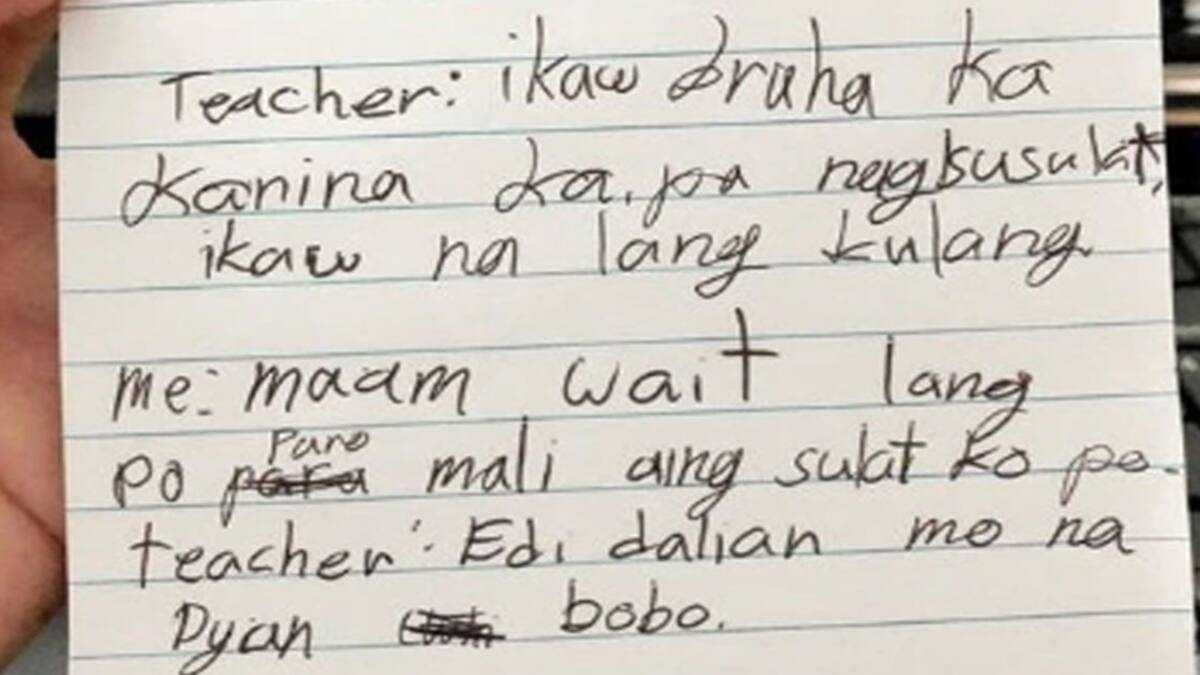 Teacher: ikaw bruha ka
kanina ka.pa nagsusulat,
ikaw na lang kulang
me: maam wait lang
po Paro mali aing sulat ko po.
teacher: Edi dalian mo na
Dyan bobo.